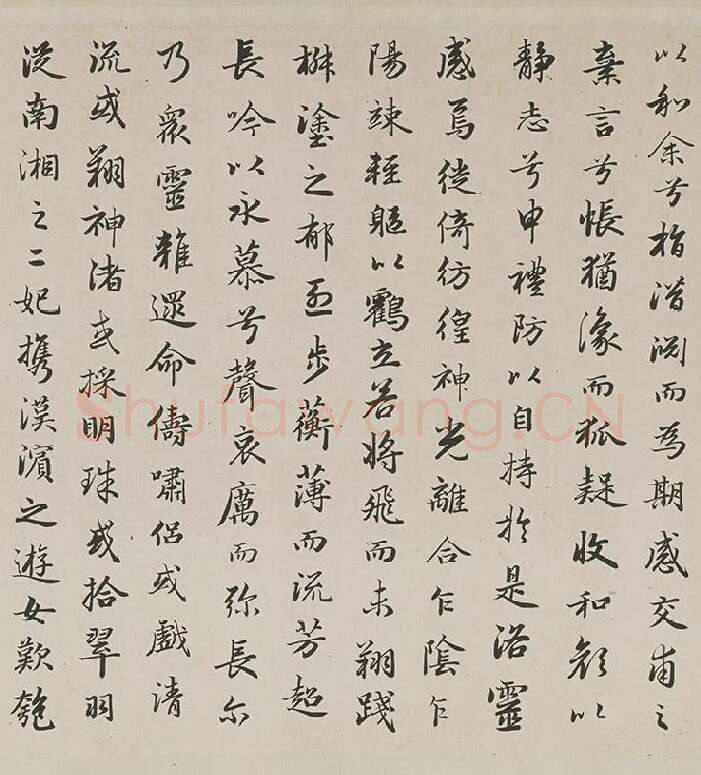 以和余兮指潛渕而為期感交甫之
棄言兮悵猶潒而狐疑收和顔以
靜志兮申禮防以自持於是洛靈
感焉徙倚彷徨神光離合乍陰乍
陽竦輕軀以鸖立若將飛而未翔踐
椒塗之郁烈步蘅薄而流芳超
長吟以永慕兮聲哀厲而弥長尔
乃衆靈雜遝命儔嘯侶或戲清
流或翔神渚或採明珠或拾翠羽
從南湘之二妃攜漢濱之遊女歎匏
Shufawang.CN